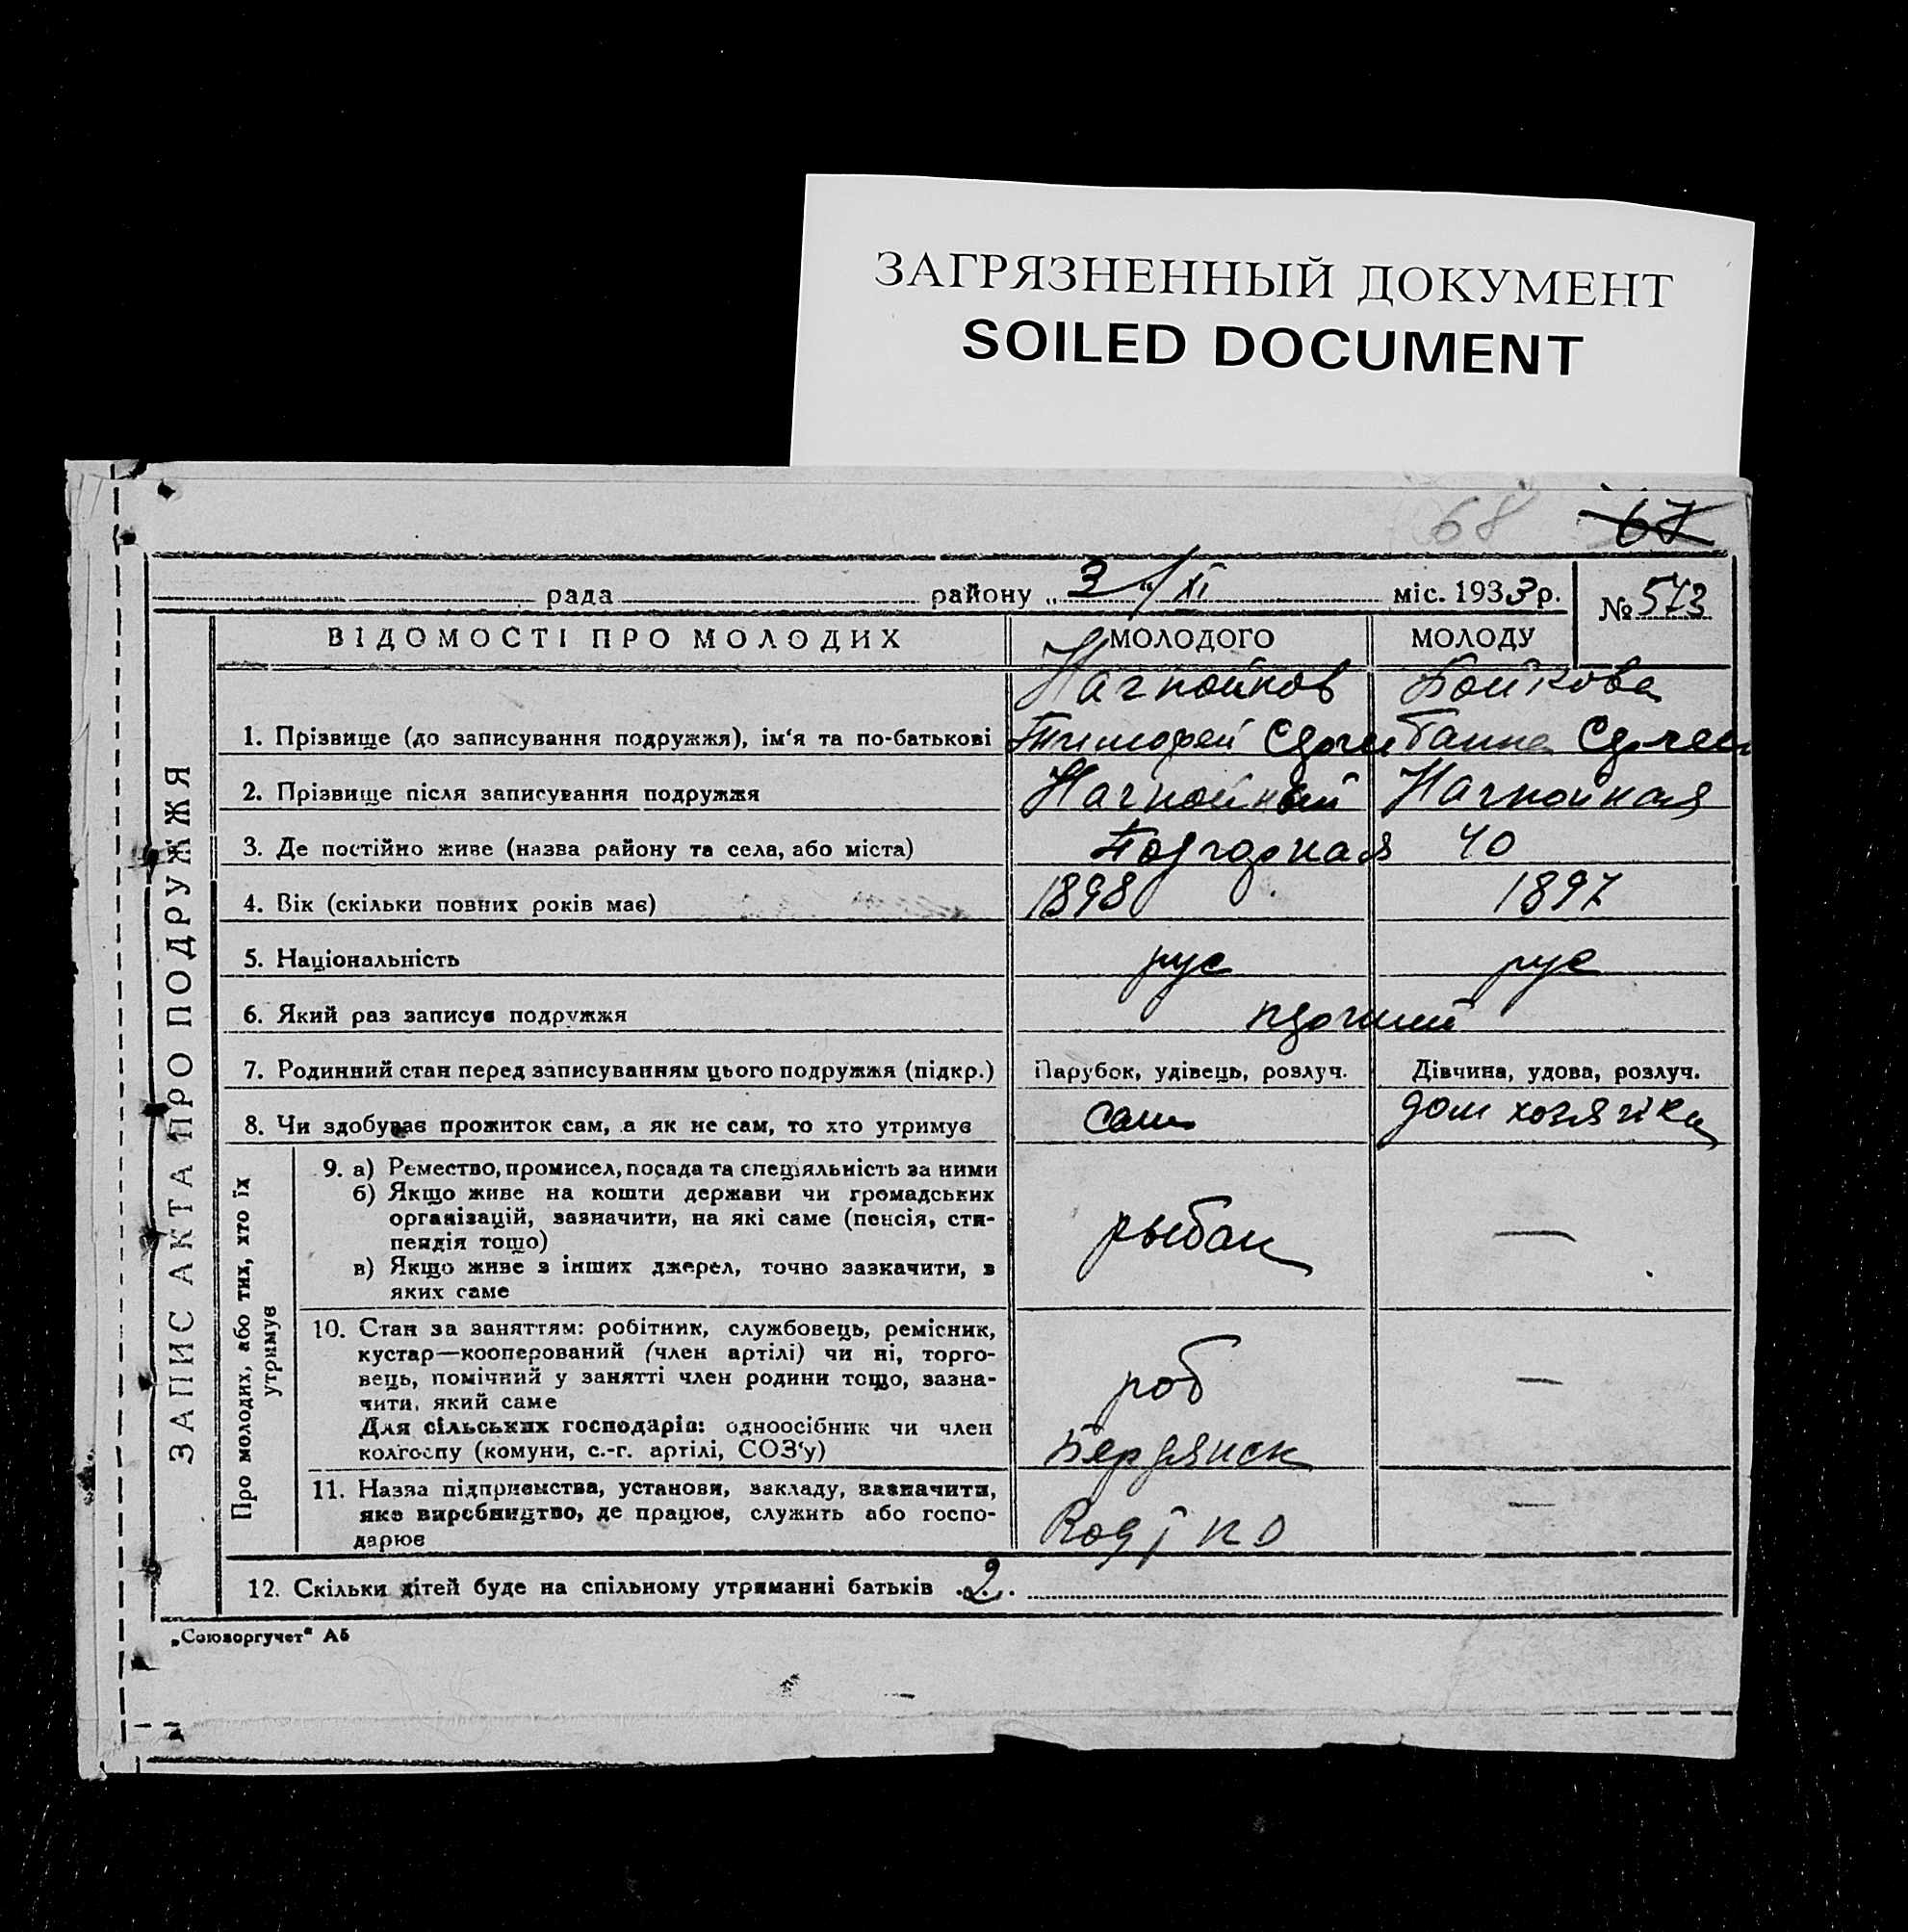 ЗАГРЯЗНЕННЫЙ ДОКУМЕНТ
SOILED DOCUMENT
68 67
рада району „3“ XI міс. 1933 р. № 573
ЗАПИС АКТА ПРО ПОДРУЖЖЯ
ВІДОМОСТІ ПРО МОЛОДИХ МОЛОДОГО МОЛОДУ
Бойкова
1. Прізвище (до записування подружжя), ім‘я та по-батькові Тимофей Ганна
2. Прізвище після записування подружжя
3. Де постійно живе (назва району та села, або міста) 40
4. Вік (скільки повних років має) 1898 1897
5. Національність рус рус
6. Який раз записує подружжя
7. Родинний стан перед записуванням цього подружжя (підкр.) Парубок, удівець, розлуч. Дівчина, удова, розлуч.
8. Чи здобуває прожиток сам, а як не сам, то хто утримує сам дом хозяйка
Про молодих, або тих, хто їх
утримує
9. а) Ремество, промисел, посада та спеціяльність за ними
б) Якщо живе на кошти держави чи громадських
організацій, зазначити, на які саме (пенсія, сти-
пендія тощо)
в) Якщо живе з інших джерел, точно зазначити, в
яких саме
рыбак —
10. Стан за заняттям: робітник, службовець, ремісник,
кустар—кооперований (член артілі) чи ні, торго-
вець, помічний у занятті член родини тощо, зазна-
чити, який саме
Для сільських господарів: одноосібник чи член
колгоспу (комуни, с.-г. артілі, СОЗ‘у)
роб —
Бердянск
11. Назва підприємства, установи, закладу, зазначити,
яке виробництво, де працює, служить або госпо-
дарює
—
12. Скільки дітей буде на спільному утриманні батьків 2
„Союзоргучет“ А5